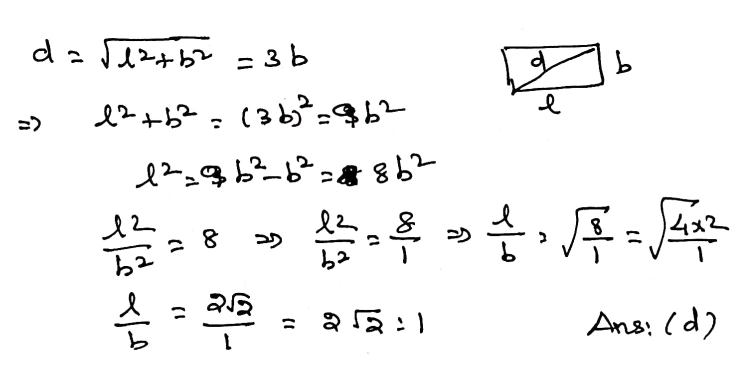 d = √l²+b² = 3b
d b
l
⇒ l²+b² = (3b)² = 9b²
l² = 9b²-b² = 8b²
l²/b² = 8 ⇒ l²/b² = 8/1 ⇒ l/b = √8/1 = √4x2/1
l/b = 2√2/1 = 2√2 : 1 Ans: (d)